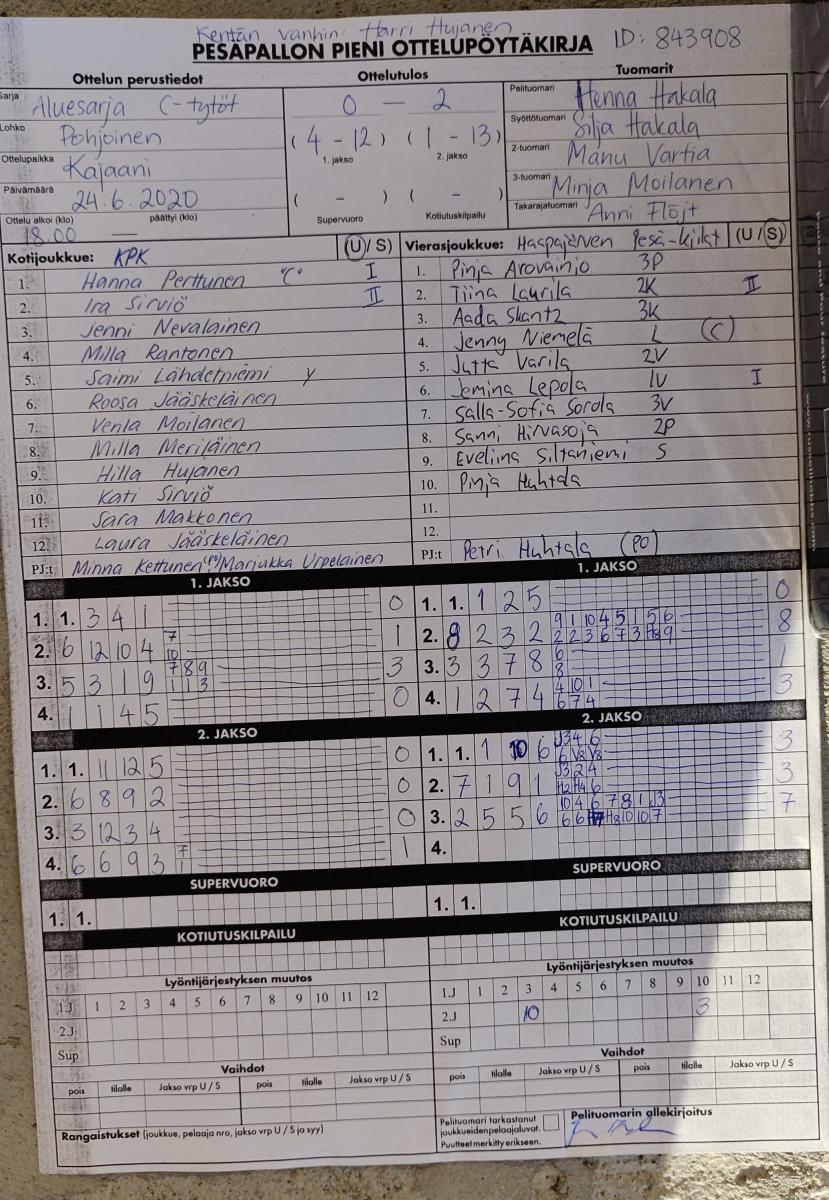 Kentän vanhin: Harri Hujanen
PESÄPALLON PIENI OTTELUPÖYTÄKIRJA ID: 843908
Ottelun perustiedot
Sarja Aluesarja C-tytöt
Lohko Pohjoinen
Ottelupaikka Kajaani
Päivämäärä 24.6.2020
Ottelu alkoi (klo) päättyi (klo)
18.00 —
Ottelutulos
0 - 2
(4 - 12) (1 - 13)
1. jakso 2. jakso
( - ) ( - )
Supervuoro Kotiutuskilpailu
Tuomarit
Pelituomari Henna Hakala
Syöttötuomari Silja Hakala
2-tuomari Manu Vartia
3-tuomari Minja Moilanen
Takarajatuomari Anni Flöjt
Kotijoukkue: KPK (U/S)
1. Hanna Perttunen "C" I
2. Ira Sirviö II
3. Jenni Nevalainen
4. Milla Rantonen
5. Saimi Lähdetniemi y
6. Roosa Jääskeläinen
7. Venla Moilanen
8. Milla Meriläinen
9. Hilla Hujanen
10. Kati Sirviö
11. Sara Makkonen
12. Laura Jääskeläinen
PJ:t Minna Kettunen /Marjukka Urpelainen
Vierasjoukkue: Haapajärven Pesä-kiilat (U/S)
1. Pinja Arovainio 3P
2. Tiina Laurila 2K II
3. Aada Skantz 3K
4. Jenny Niemelä L (C)
5. Jutta Varila 2V
6. Jemina Lepola 1V I
7. Salla-Sofia Sorola 3V
8. Sanni Hirvasoja 2P
9. Eveliina Siltaniemi S
10. Pinja Huhtala
11.
12.
PJ:t Petri Huhtala (PO)
1. JAKSO
1. 1. 3 4 1 0
2. 6 12 10 4 7 10 1
3. 5 3 1 9 7 8 9 1 1 3 3
4. 1 1 4 5 0
2. JAKSO
1. 1. 11 12 5 0
2. 6 8 9 2 0
3. 3 12 3 4 0
4. 6 6 9 3 7 1 1
SUPERVUORO
1. 1.
KOTIUTUSKILPAILU
Lyöntijärjestyksen muutos
1.J 1 2 3 4 5 6 7 8 9 10 11 12
2.J
Sup
Vaihdot
pois tilalle Jakso vrp U / S pois tilalle Jakso vrp U / S
Rangaistukset (joukkue, pelaaja nro, jakso vrp U / S ja syy)
1. JAKSO
1. 1. 1 2 5 0
2. 8 2 3 2 9 1 10 4 5 1 5 6
2 2 3 6 7 3 H8 9 8
3. 3 3 7 8 6 8 1
4. 1 2 7 4 4 10 1 6 7 4 3
2. JAKSO
1. 1. 1 10 6 J3 4 6
6 V8 V8 3
2. 7 1 9 1 J3 2 4
H2 H4 6 3
3. 2 5 5 6 10 4 6 7 8 1 J3
6 6 H8 10 10 7 7
4.
SUPERVUORO
1. 1.
KOTIUTUSKILPAILU
Lyöntijärjestyksen muutos
1.J 1 2 3 4 5 6 7 8 9 10 11 12
2.J 10 3
Sup
Vaihdot
pois tilalle Jakso vrp U / S pois tilalle Jakso vrp U / S
Pelituomari tarkastanut
joukkueiden pelaajaluvat.
Puutteet merkitty erikseen.
Pelituomarin allekirjoitus